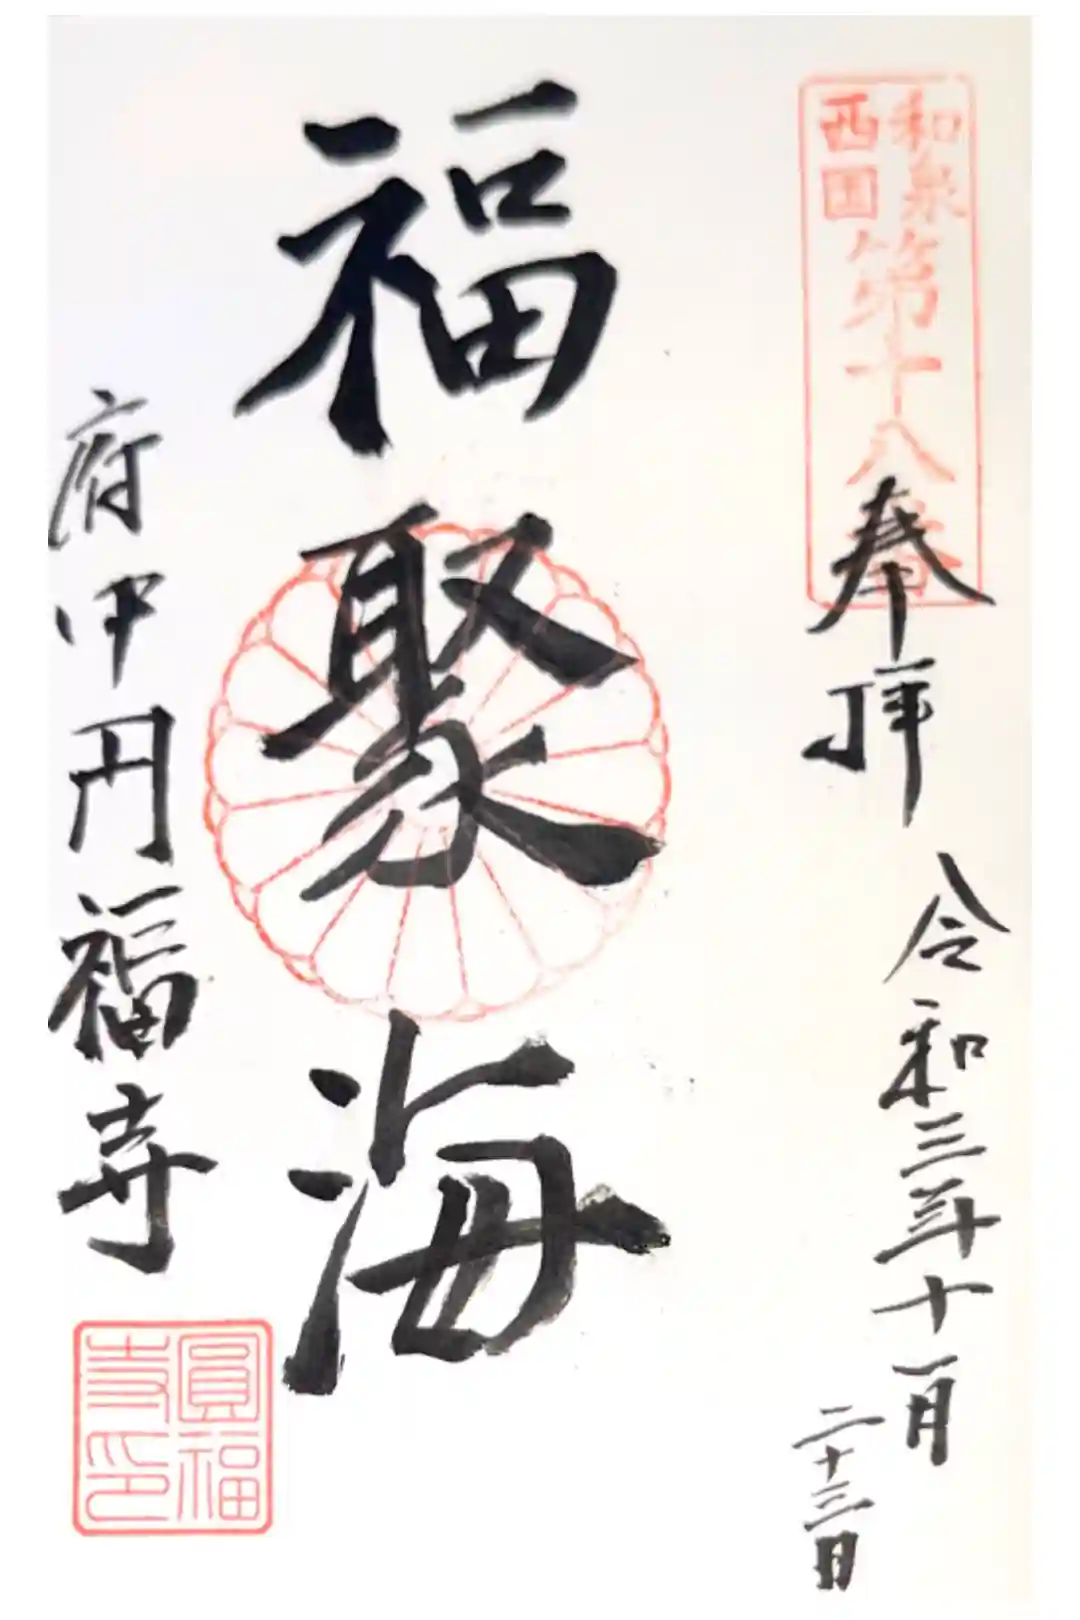 和泉
西国
第十八番
奉拝
令和三年十一月
二十三日
福聚海
府中円福寺
圓福
寺印